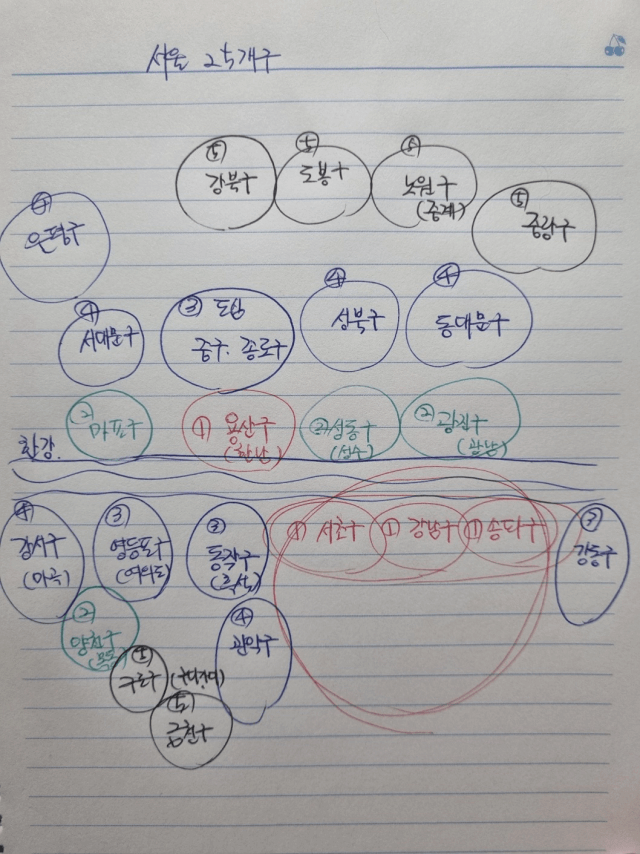 서울 25개구
⑤ ⑤ ⑤
강북구 도봉구 노원구
(중계)
⑤
중랑구
④
은평구
④
서대문구
③ 도심
중구·종로구
④
성북구
④
동대문구
②
마포구
① 용산구
(한남)
② 성동구
(성수)
② 광진구
(광남)
한강.
④
강서구
(마곡)
③
영등포구
(여의도)
③
동작구
(흑석)
① 서초구 ① 강남구 ① 송파구
강동구
②
양천구
(목동)
④
관악구
⑤
구로구 (구디,가디)
⑤
금천구